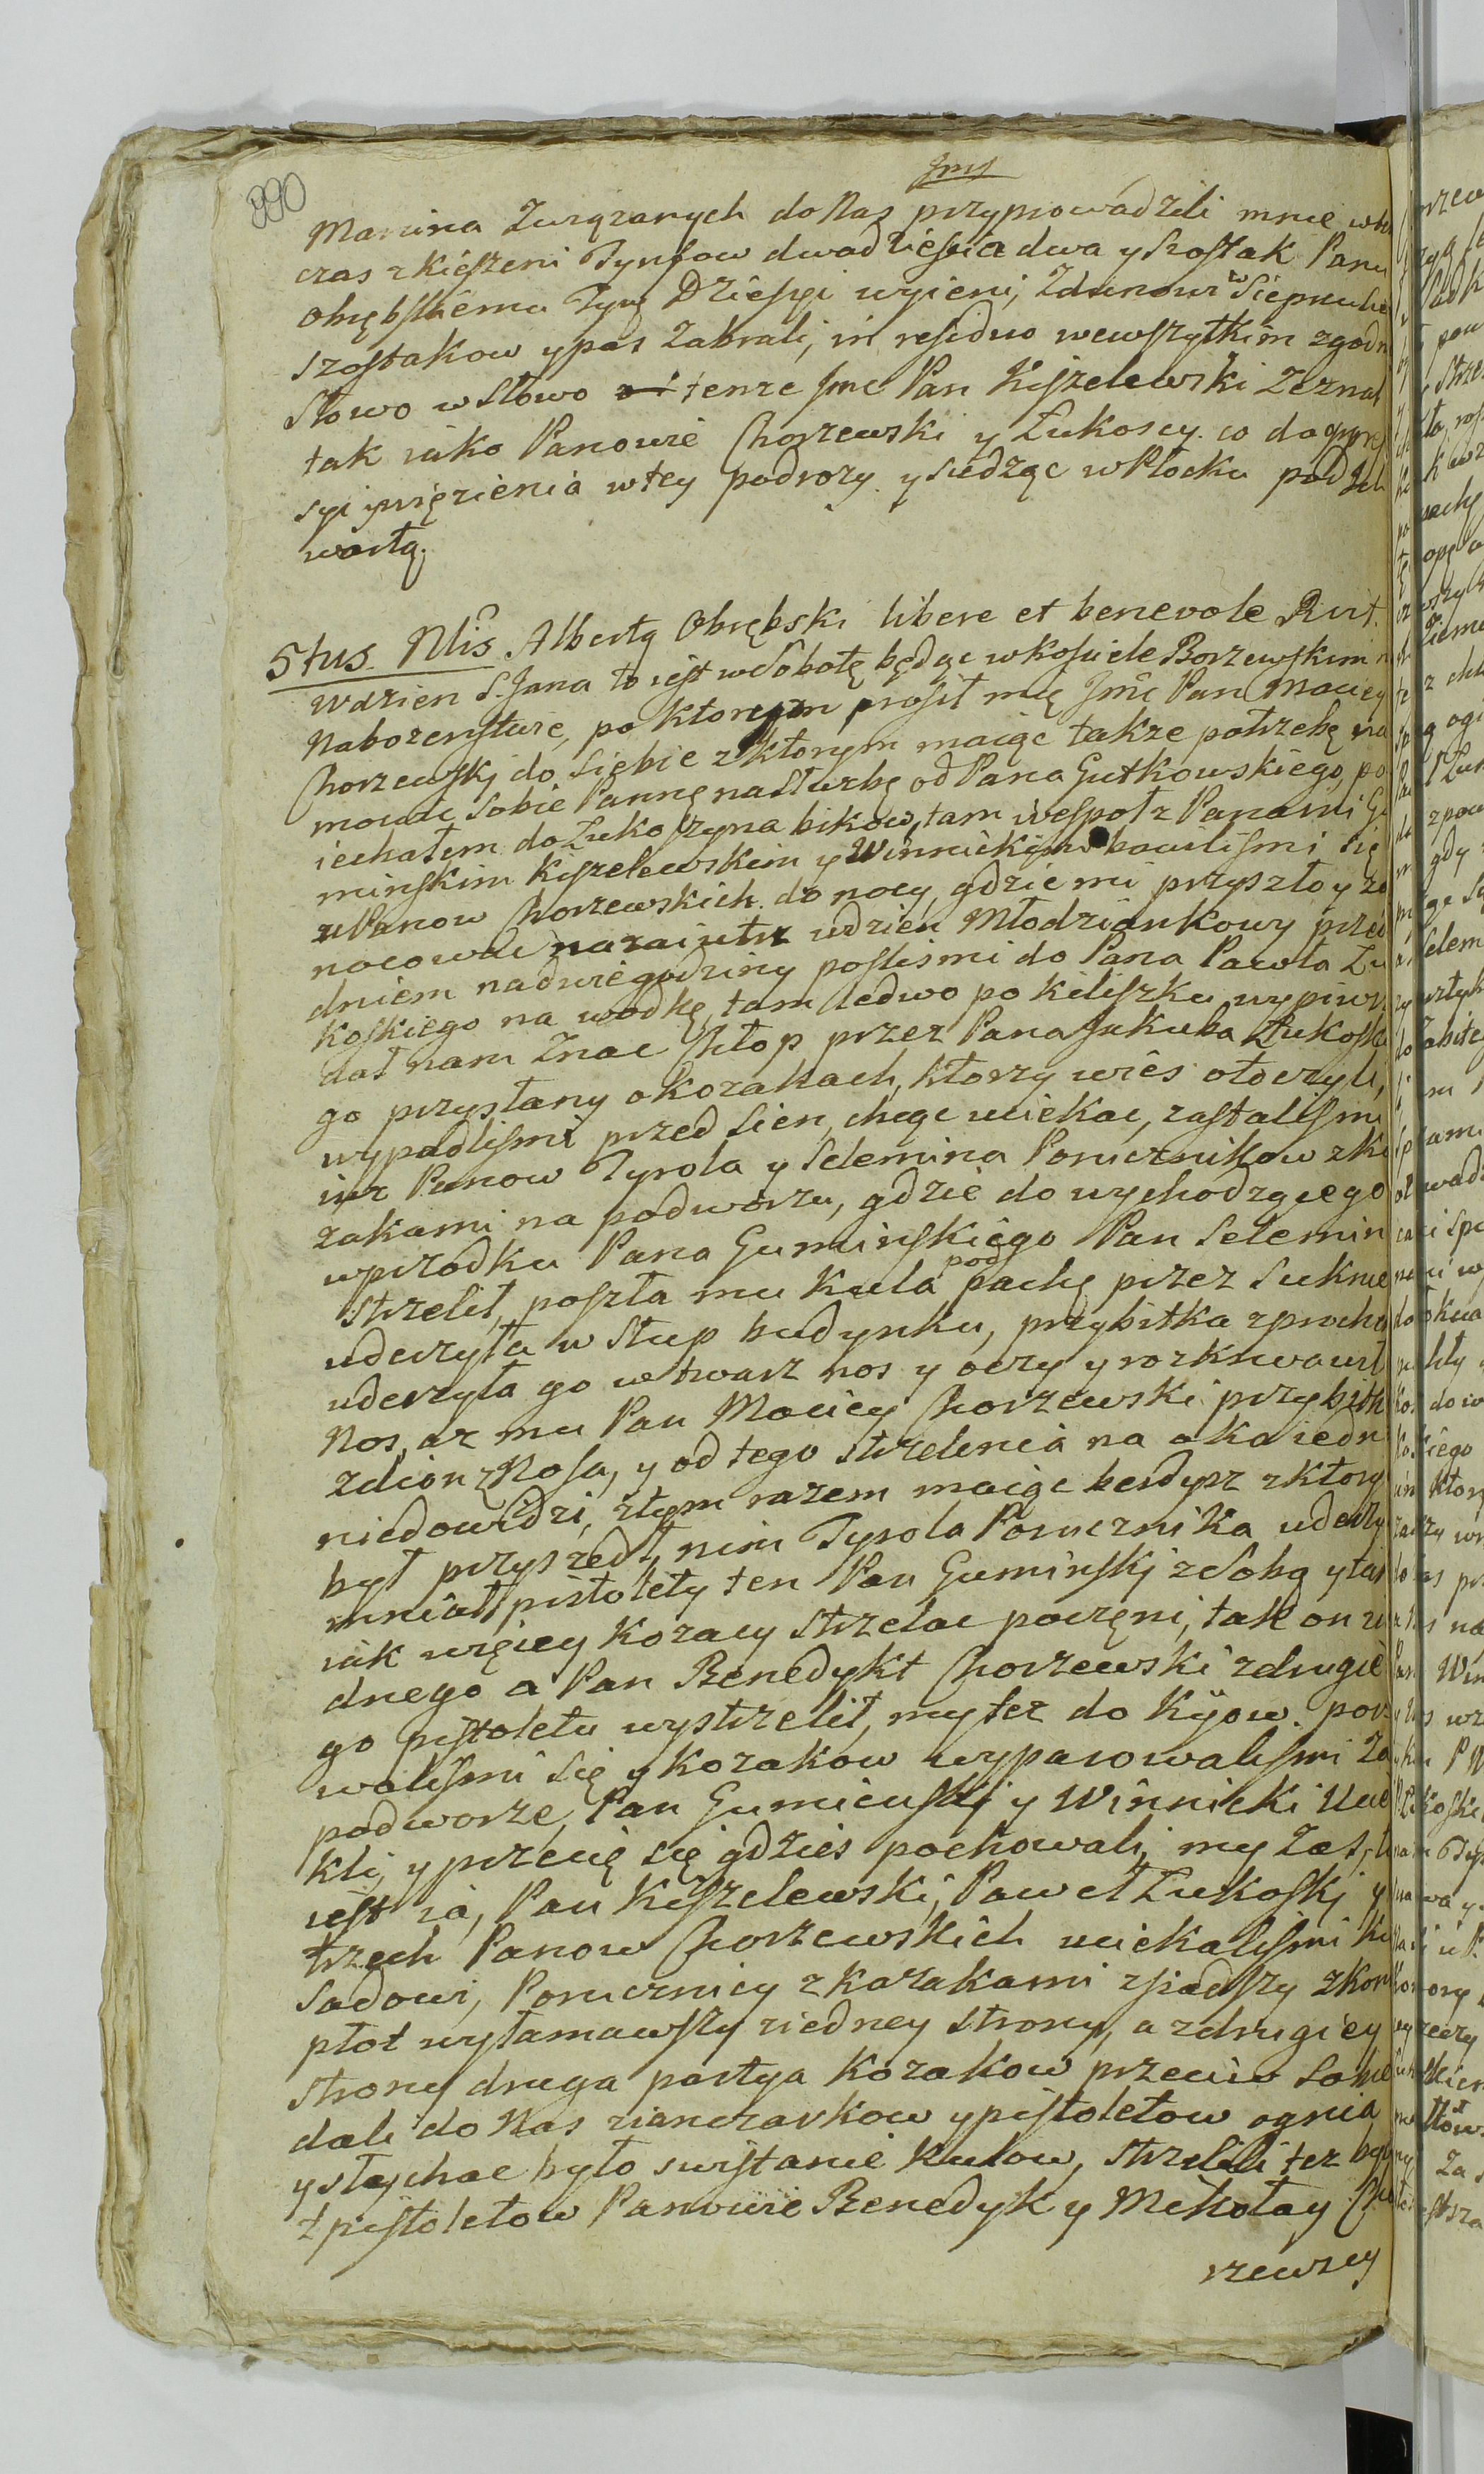 890
Jmć
Manina Związanych do Nas przyprowadzili mnie w
czas z kieszeni Tynfow dwadziescia dwa y szostak Panu
Obrębskiemu Tynf Dziesięi wyieni, Zdunowi w Siepraku
szostakow y pas Zabrali, in residuo we wszytkim zgodn
Słowo w Słowo tenze Jmc Pan Kiszelewski Zeznał
tak iako Panowie Chorzewski y Łukoscy. co do oppre
syi więzienia w tey podrozy y siedząc w Płocku pod
wartą.
5tus Nlis Albertq Obrębski libere et benevole Rut.
W dzien S. Jana to iest w Sobotę będąc w Kosciele Borzewskim n
Nabozenstwie, po ktorym prosił mię Jmć Pan Maciey
Chorzewskj do Siebie z ktorym maiąc takze potrzebę na
mowic Sobie Pannę na Słuzbę od Pana Gutkowskiego, po
iechałem do Łukoszyna bikow, tam wespoł z Panami Gu
minskim Kiszelewskim y Winnickim bawilismi się
u Panow Chorzewskich do nocy, gdzie mi przyszło y za
nocowac nazaiutrz w dzien Młodziankowy przed
dniem na dwie godziny poslismi do Pana Pawła Łu
koskiego na wodkę, tam ledwo po kieliszku wypiwsz
dał nam Znac Chłop przez Pana Jakuba Łukoskie
go przysłany o kozakach, ktorzy wies otoczyli,
wypadlismi przed Sien, chcąc uciekac, zastalismi
iuz Panow Tyrola y Selemina Porucznikow z ko
zakami na podworzu, gdzie do wychodzącego
wprzodku Pana Guminskiego Pan Selemin
strzelił, poszła mu kula pod pachę przez Suknie
uderzyła w Słup budynku, przybitka z prochu
uderzyła go w twarz nos y oczy y rozkrwawił
Nos, az mu Pan Maciey Chorzewski przybitk
zdiοn z Nosa, y od tego strzelenia na oko iedn
niedowidzi, z tym razem maiąc berdysz z ktory
był przyszedł, nim Tyrola Porucznika uderzy
mniał pistolety ten Pan Guminskj z Sobą y tak
iak więcey Kozacy strzelac poczęni, tak on zi
dnego a Pan Benedykt Chorzewski z drugie
go pistoletu wystrzelił, my tez do Kijow por
walismi się y kozakow wyparowalismi za
podworze, Pan Gumienskj y Winnicki Ucie
kli, y przecię się gdzies pochowali, my Zas, to
iest ia, Pan Kiszelewski, Paweł Łukoskj y
trzech Panow Chorzewskich uciekalismi ku
Sadowi, Porucznicy z kozakami zsiadszy z kon
płot wyłamawszy z iedney strony, a z drugiey
strony druga partya Kozakow przeciw Sobie
dali do Nas z ianczarkow y pistoletow ognia
y słychac było swistanie kulow, strzelili tez by
z pistoletow Panowie Benedyk y Mikołay Cho
rzewscy